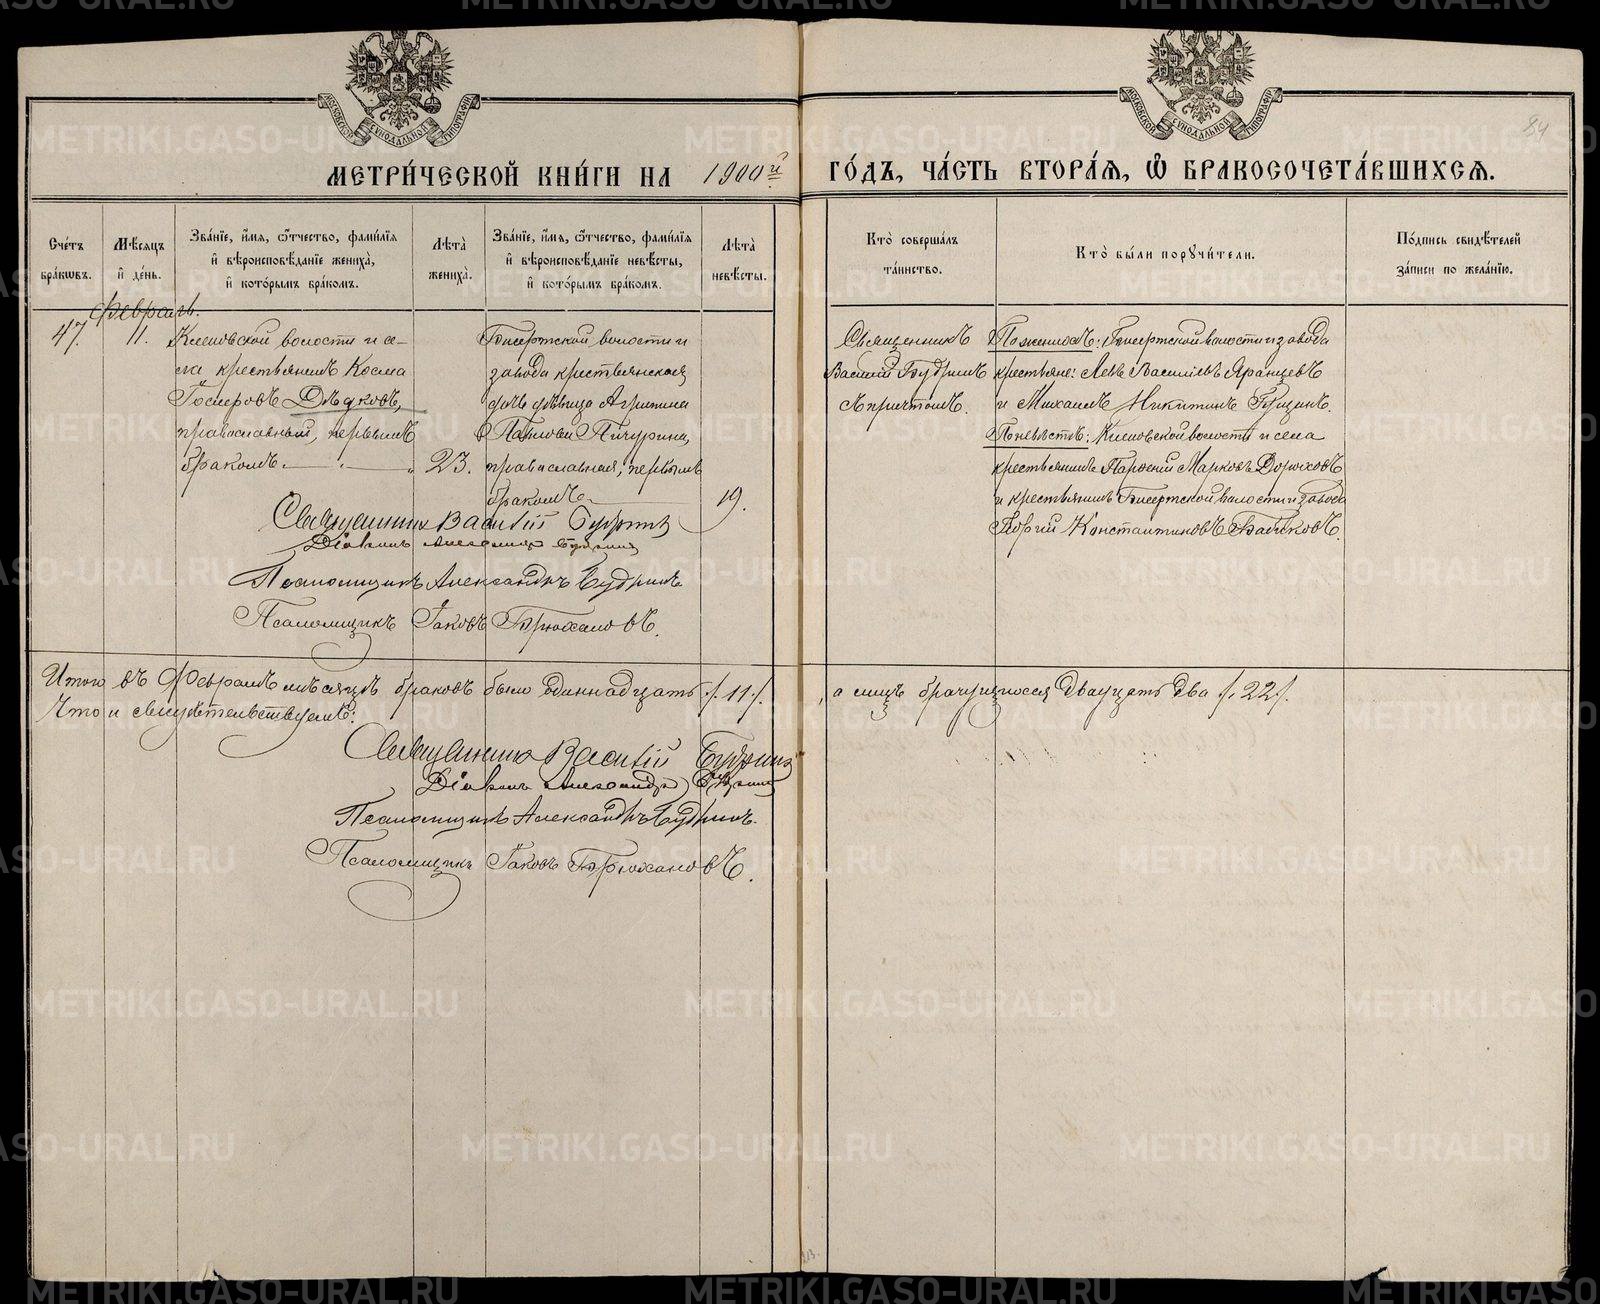 МОСКОВСКОЙ СУНОДАЛЬНОЙ ТИПОГРАФІИ
МОСКОВСКОЙ СУНОДАЛЬНОЙ ТИПОГРАФІИ
84
МЕТРИ́ЧЕСКОЙ КНИ́ГИ НА 1900й ГО́ДЪ, ЧА́СТЬ ВТОРА́Я, Ѽ БРАКОСОЧЕТА́ВШИХСЯ.
Сче́тъ бра́кѡвъ.
Мѣ́сяцъ и҆ де́нь.
Зва́нїе, и҆́мя, ѻ҆́тчество, фами́лїя и҆ вѣроисповѣ́данїе жениха̀, и҆ кото́рымъ бра́комъ.
Лѣ́та̀ жениха̀.
Зва́нїе, и҆́мя, ѻ҆́тчество, фами́лїя и҆ вѣроисповѣ́данїе невѣ́сты, и҆ кото́рымъ бра́комъ.
Лѣ́та̀ невѣ́сты.
Кто̀ соверша́лъ та́инство.
Кто̀ бы́ли порꙋчи́тели.
По́дпись свидѣ́телей за́писи по жела́нїю.
Февраль.
47.
11.
Кленовской волости и се-
ла крестьянинъ Косма
Дѣдковъ,
православный, первымъ
бракомъ.
23.
Бисертской волости и
завода крестьянская
дочь дѣвица Агрипина
Павлова Пичурина,
православная, первымъ
бракомъ.
19.
Священникъ
Василій Будринъ
съ причтомъ.
По женихѣ: Бисертской волости и завода
крестьяне: Левъ Васильевъ Яранцевъ
и Михаилъ Никитинъ Гущинъ.
По невѣстѣ: Кленовской волости и села
крестьянинъ Марковъ Дорюховъ
и крестьянинъ Бисертской волости и завода
Георгий Константиновъ Бабиковъ.
Священникъ Василій Будринъ
Діаконъ Александръ Будринъ
Псаломщикъ Александръ Будринъ
Псаломщикъ Іаковъ Брюхановъ.
Итого въ Февралѣ мѣсяцѣ браковъ было одиннадцать /.11./, а лицъ брачущихся двадцать два /.22./.
Что и свидѣтельствуемъ:
Священникъ Василій Будринъ
Діаконъ Александръ Будринъ
Псаломщикъ Александръ Будринъ.
Псаломщикъ Іаковъ Брюхановъ.
METRIKI.GASO-URAL.RU